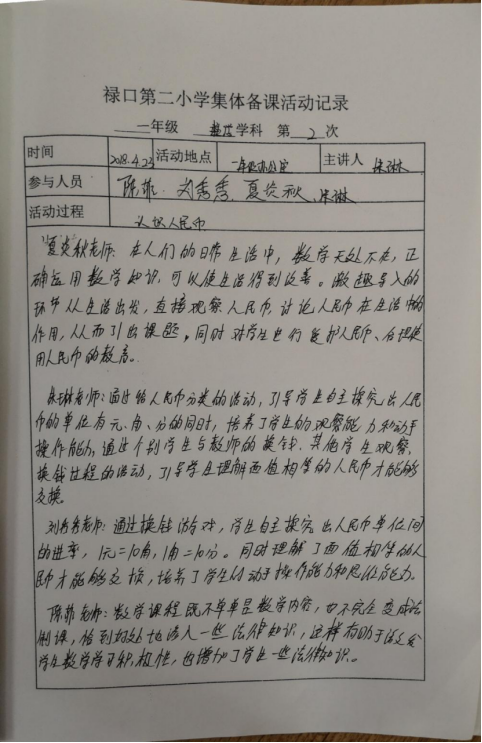 禄口第二小学集体备课活动记录
一年级 数学学科 第 2 次
时间 2018.4.23 活动地点 一年级办公室 主讲人 朱琳
参与人员 陈菲、刘秀秀、夏炎秋、朱琳
活动过程 认识人民币
夏炎秋老师：在人们的日常生活中，数学无处不在，正
确运用数学知识，可以使生活得到改善。激趣导入的
环节从生活出发，直接观察人民币，讨论人民币在生活中的
作用，从而引出课题，同时对学生进行爱护人民币、合理使
用人民币的教育。
朱琳老师：通过给人民币分类的活动，引导学生自主探究出人民
币的单位有元、角、分的同时，培养了学生的观察能力和动手
操作能力，通过个别学生与教师的换钱，其他学生观察
换钱过程的活动，引导学生理解面值相等的人民币才能够
交换。
刘秀秀老师：通过换钱游戏，学生自主探究出人民币单位间
的进率，1元=10角，1角=10分。同时理解了面值相等的人
民币才能够交换，培养了学生的动手操作能力和思维能力。
陈菲老师：数学课程既不单单是数学内容，也不完全变成法
制课，恰到好处地渗入一些法律知识，这样有助于激发
学生数学学习积极性，也增加了学生一些法律知识。